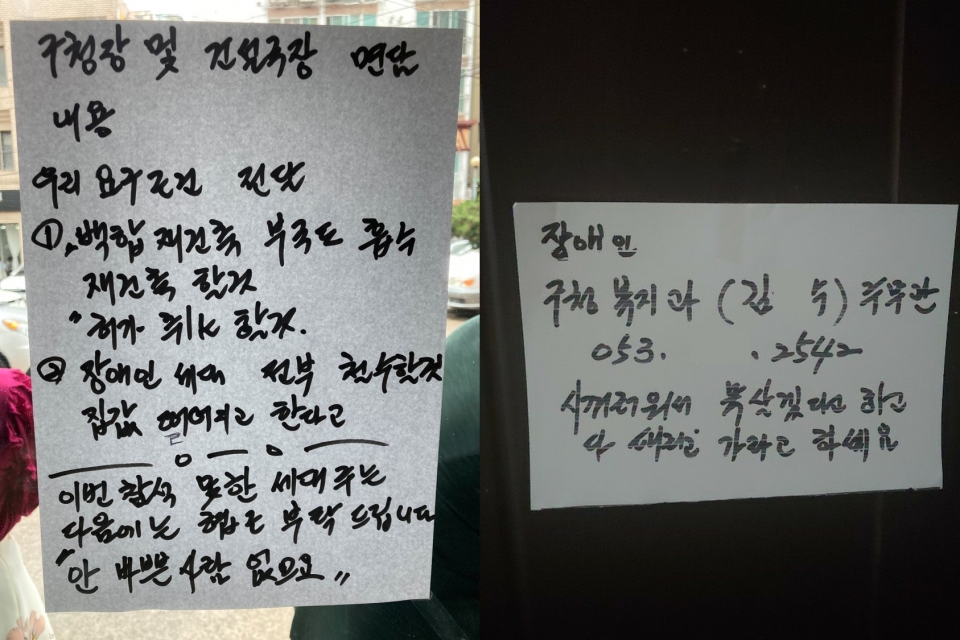 구청장 및 건설국장 면담
내용
우리 요구조건 전달
①, 백합 재건축 부국도 흡수
재건축 할것
〃 허가 취소 할것.
② 장애인 세대 전부 철수할것
집값 떨어지고 한다고
이번 참석 못한 세대주는
다음에는 협조 부탁 드립니다
"안 바쁜 사람 없으요"
장애인
구청 복지과 (김 수) 주무관
053. .2542
시끄러워서 못살겠다고 하고
다 데리고 가라고 하세요